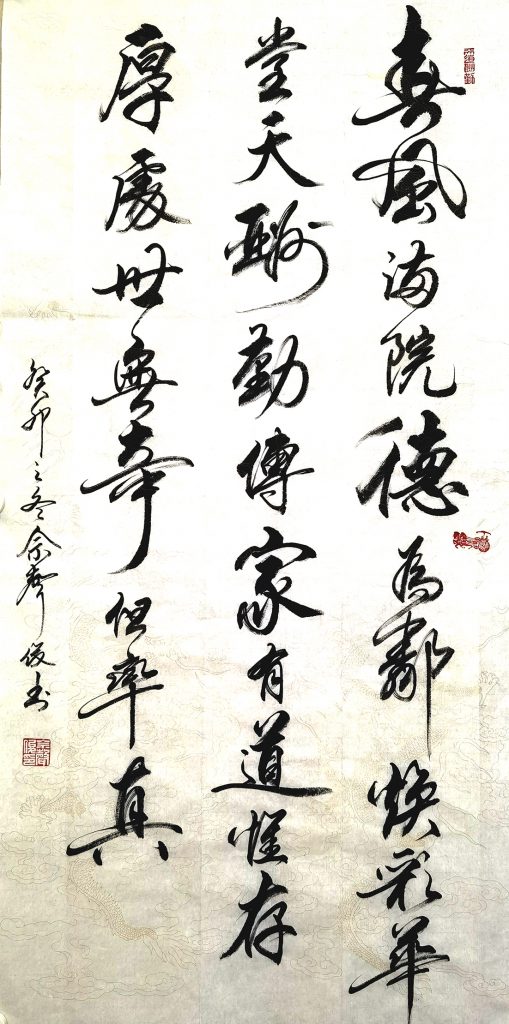 春風滿院德為鄰煥彩華
堂天酬勤傳家有道惟存
厚處世無奇但率真
癸卯之冬佘聲俊書